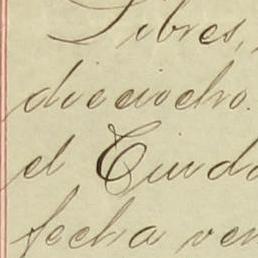 Libres,
dieciocho.
el Ciuda
fecha ven